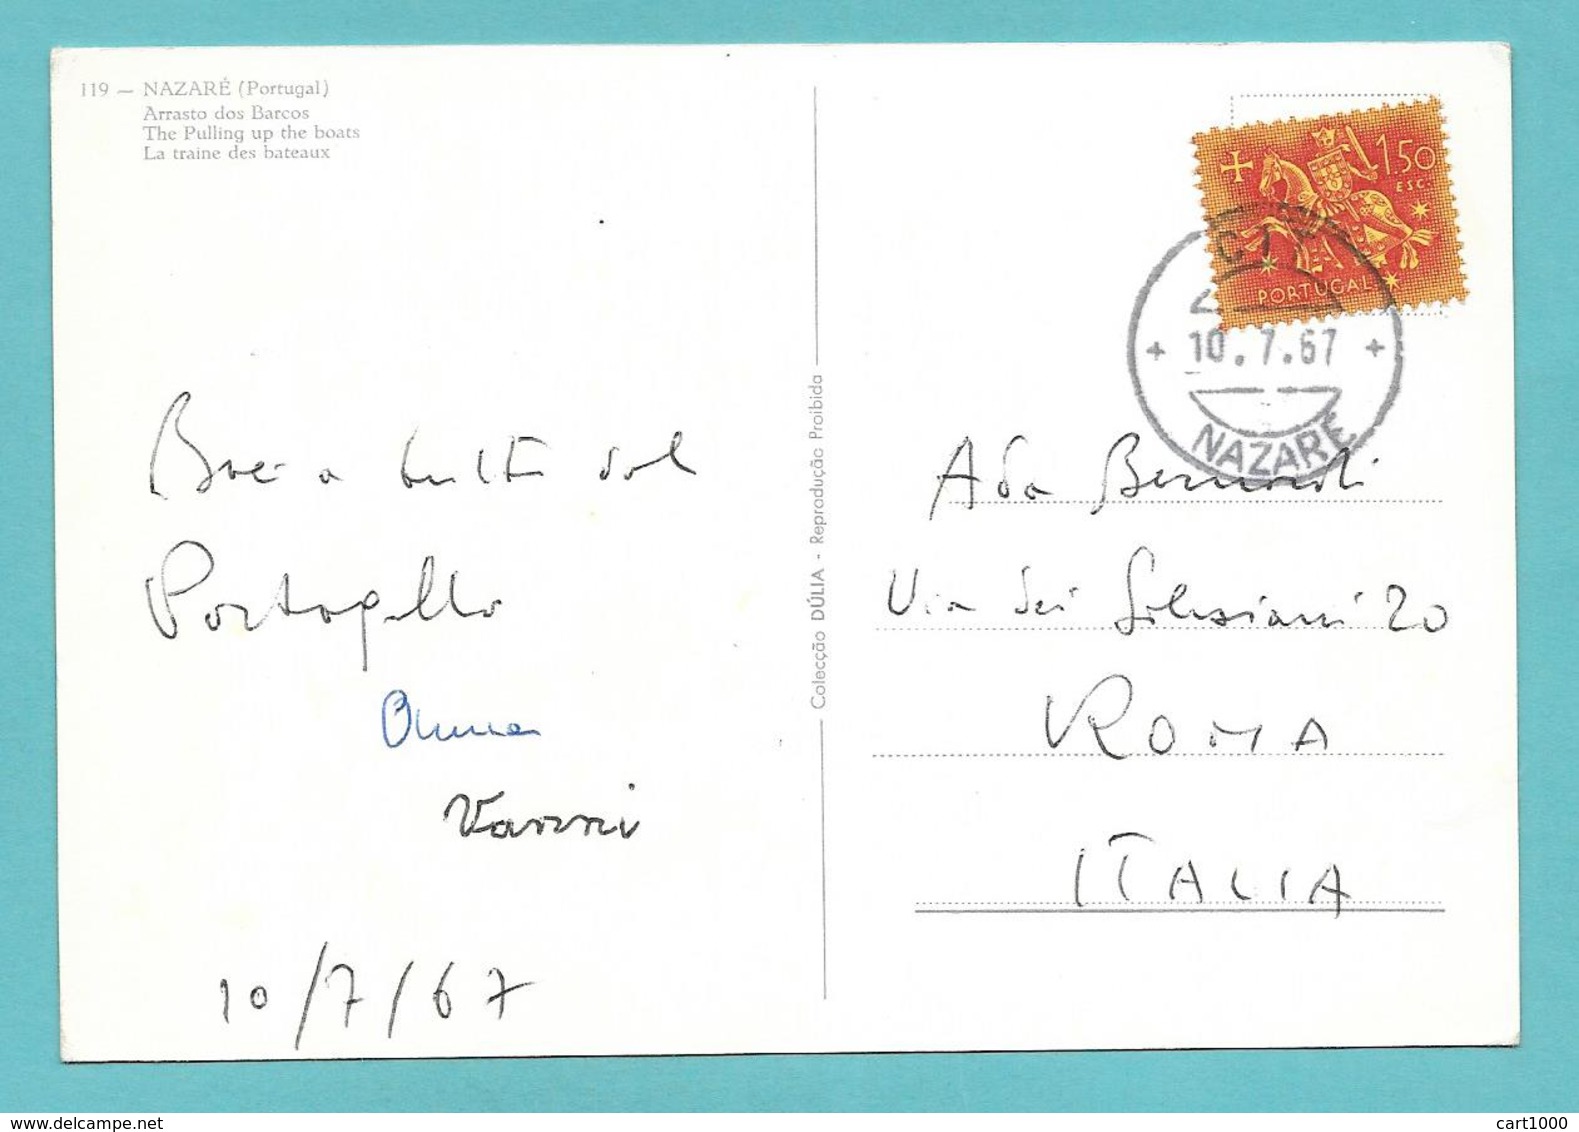 119 — NAZARÉ (Portugal)
Arrasto dos Barcos
The Pulling up the boats
La traine des bateaux
a tutti dal
Portogallo
Vanni
10/7/67
Colecção DÚLIA - Reprodução Proibida
1.50
ESC.
PORTUGAL
CTT
+ 10.7.67 +
NAZARÉ
Ada Bernardi
Via dei Salesiani 20
ROMA
ITALIA
cart1000